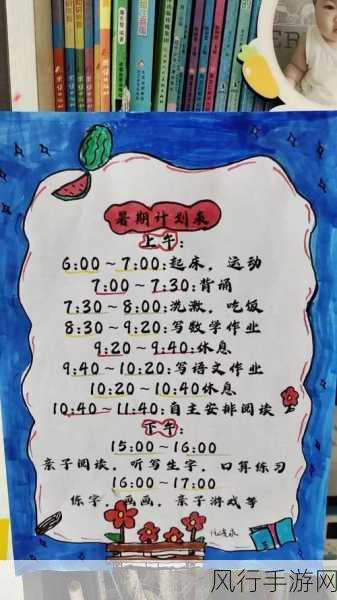 暑期计划表
上午:
6:00~7:00:起床,运动
7:00~7:30:背诵
7:30~8:00:洗漱,吃饭
8:30~9:20:写数学作业
9:20~9:40:休息
9:40~10:20:写语文作业
10:20~10:40休息
10:40~11:40:自主安排阅读
下午:
15:00~16:00
亲子阅读,听写生字,口算练习
16:00~17:00
练字,画画,亲子游戏等
风行手游网